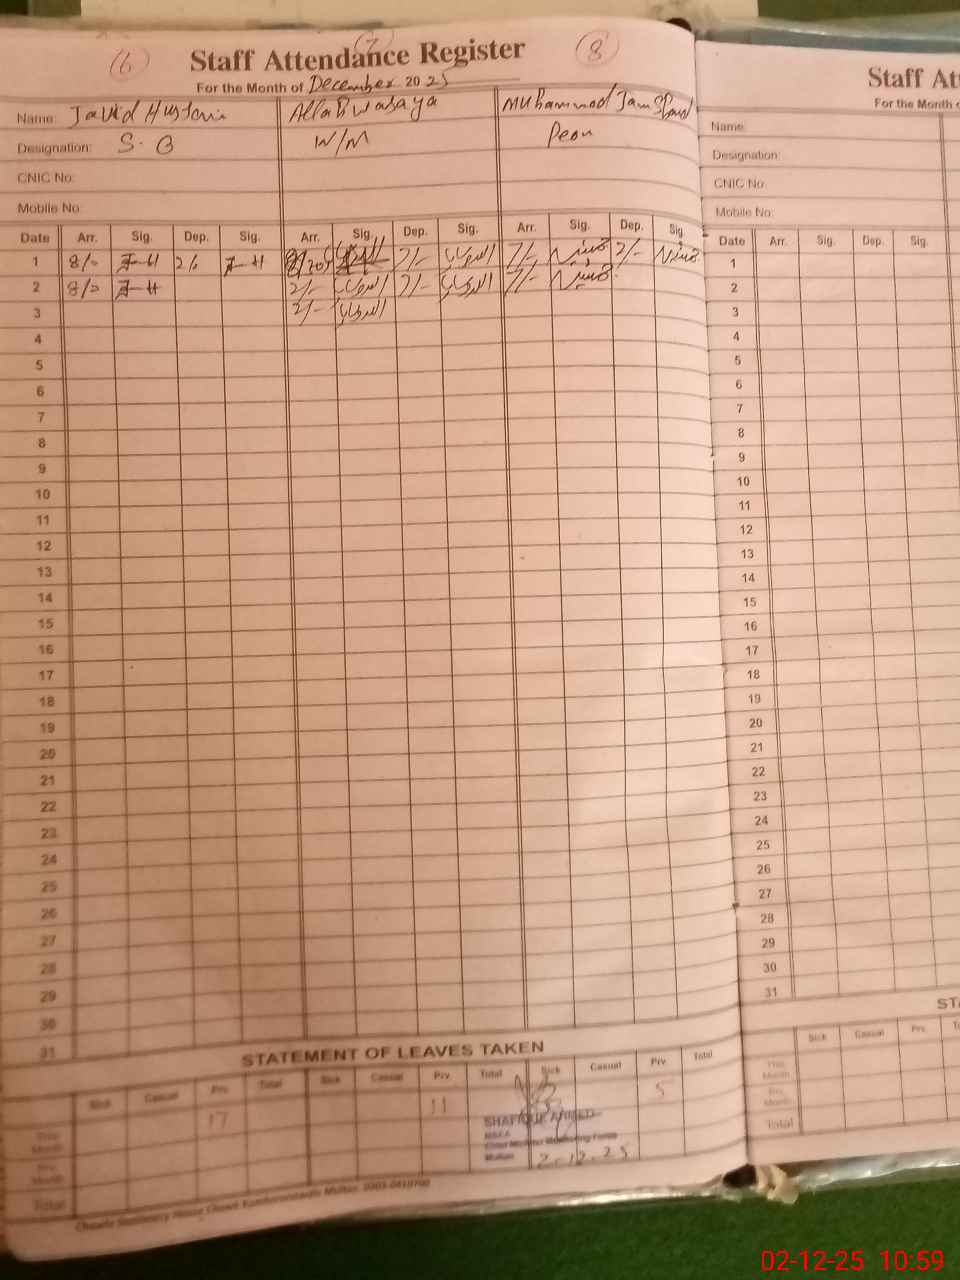 6 7 8
Staff Attendance Register
For the Month of December 2025
Name: Javid Hussain Allah Wasaya Muhammad Jamshad
Designation: S.G W/M Peon
CNIC No:
Mobile No:
Date Arr. Sig. Dep. Sig. Arr. Sig. Dep. Sig. Arr. Sig. Dep. Sig.
1 8/0 J-H 2/0 J-H 2/- 7/- 7/-
2 8/0 J-H 2/- 7/- 7/-
3 2/-
4
5
6
7
8
9
10
11
12
13
14
15
16
17
18
19
20
21
22
23
24
25
26
27
28
29
30
31
STATEMENT OF LEAVES TAKEN
Sick Casual Prv. Total Sick Casual Prv Total Sick Casual Prv Total
This Month 17 11 5
Prv. Month
Total
SHAFIQUE AHMED
MEA
Chief Minister Monitoring Force
Multan
2.12.25
Staff At
For the Month o
Name:
Designation:
CNIC No:
Mobile No:
Date Arr. Sig. Dep. Sig.
1
2
3
4
5
6
7
8
9
10
11
12
13
14
15
16
17
18
19
20
21
22
23
24
25
26
27
28
29
30
31
STA
Sick Casual Prv. To
This Month
Prv. Month
Total
02-12-25 10:59